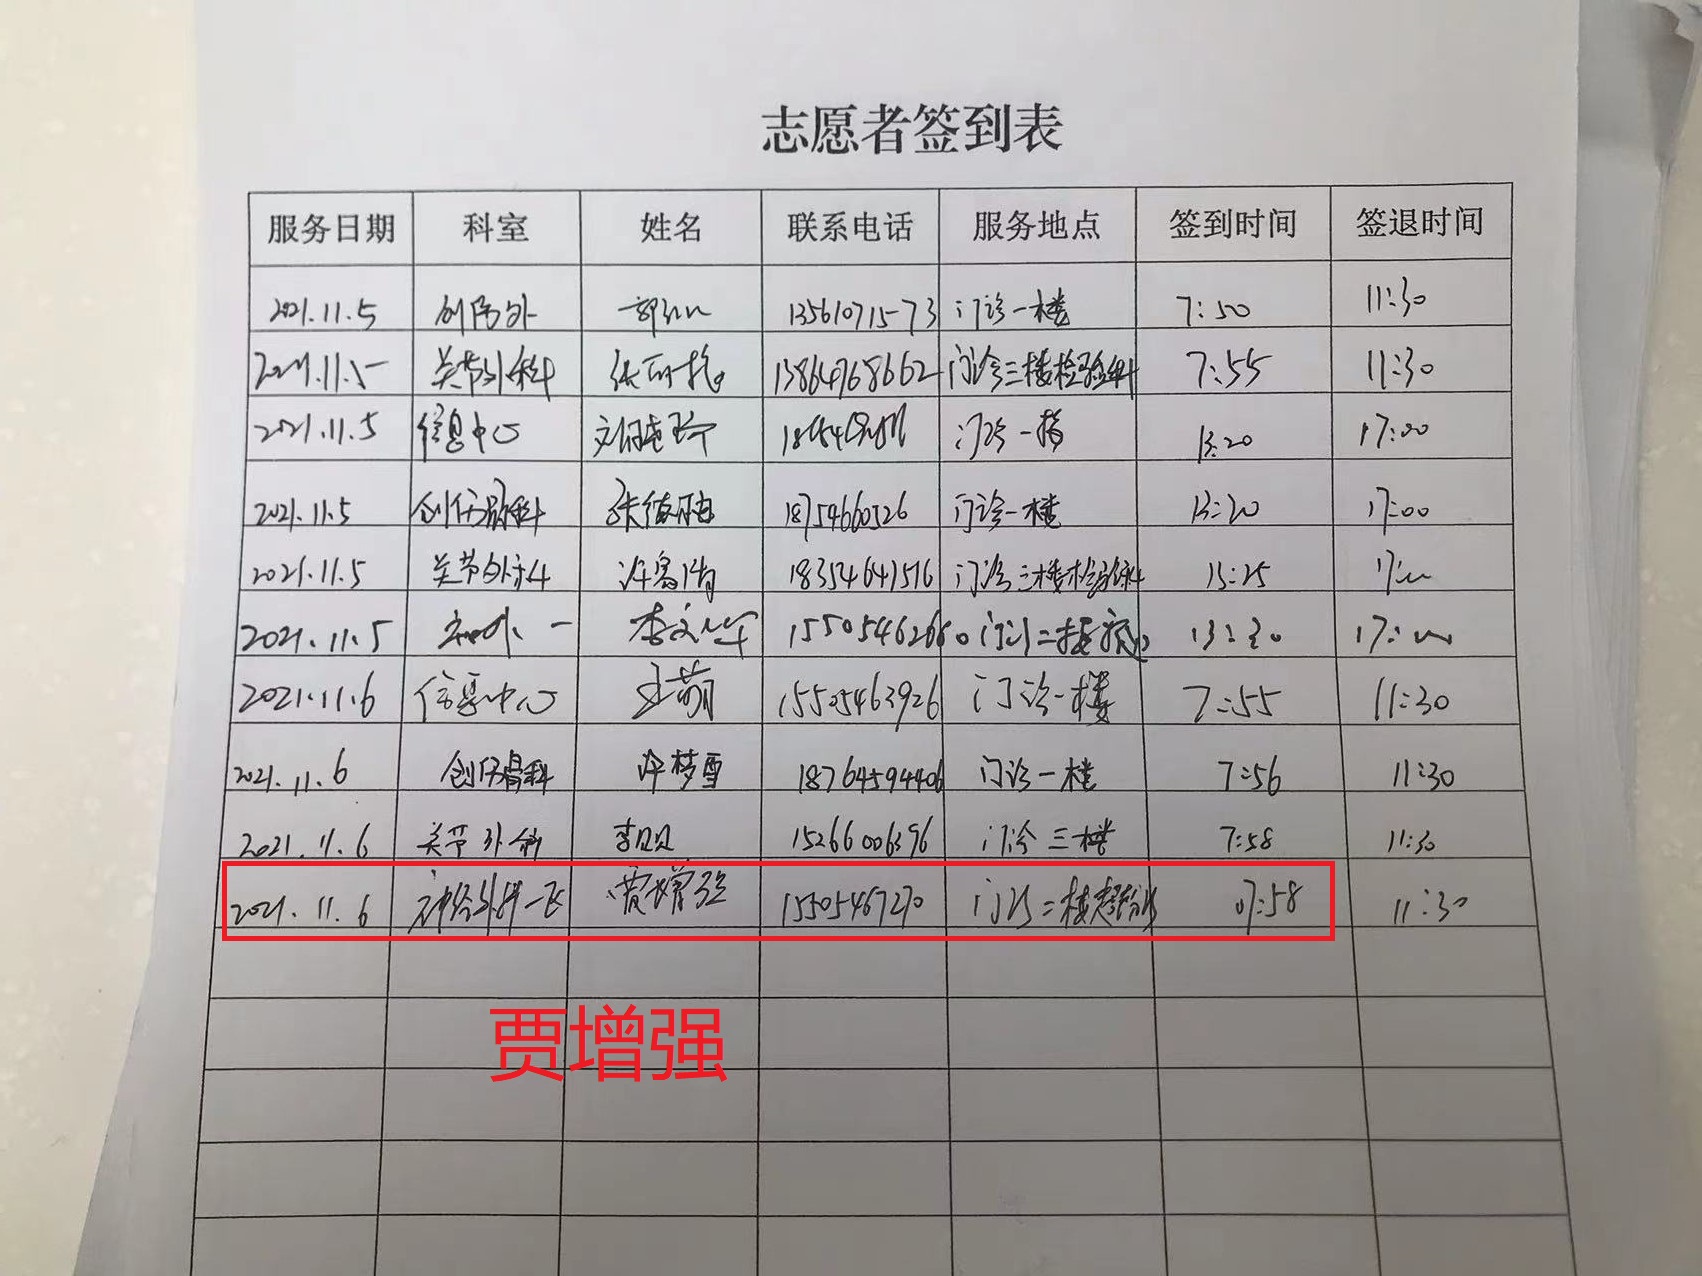 志愿者签到表
服务日期 科室 姓名 联系电话 服务地点 签到时间 签退时间
2021.11.5 创伤外 13561071573 门诊一楼 7:50 11:30
2021.11.5 关节外科 13864768662 门诊三楼检验科 7:55 11:30
2021.11.5 信息中心 门诊一楼 13:20 17:00
2021.11.5 创伤骨科 18754660526 门诊一楼 13:20 17:00
2021.11.5 关节外科 18354641516 门诊三楼检验科 13:25 17:00
2021.11.5 李文华 15505462660 门诊二楼 13:30 17:00
2021.11.6 信息中心 王萌 15505463926 门诊一楼 7:55 11:30
2021.11.6 创伤骨科 许梦雪 18764594406 门诊一楼 7:56 11:30
2021.11.6 关节外科 李贝贝 15266006396 门诊三楼 7:58 11:30
2021.11.6 神经外科一区 贾增强 15505467270 门诊二楼超声科 07:58 11:30
贾增强